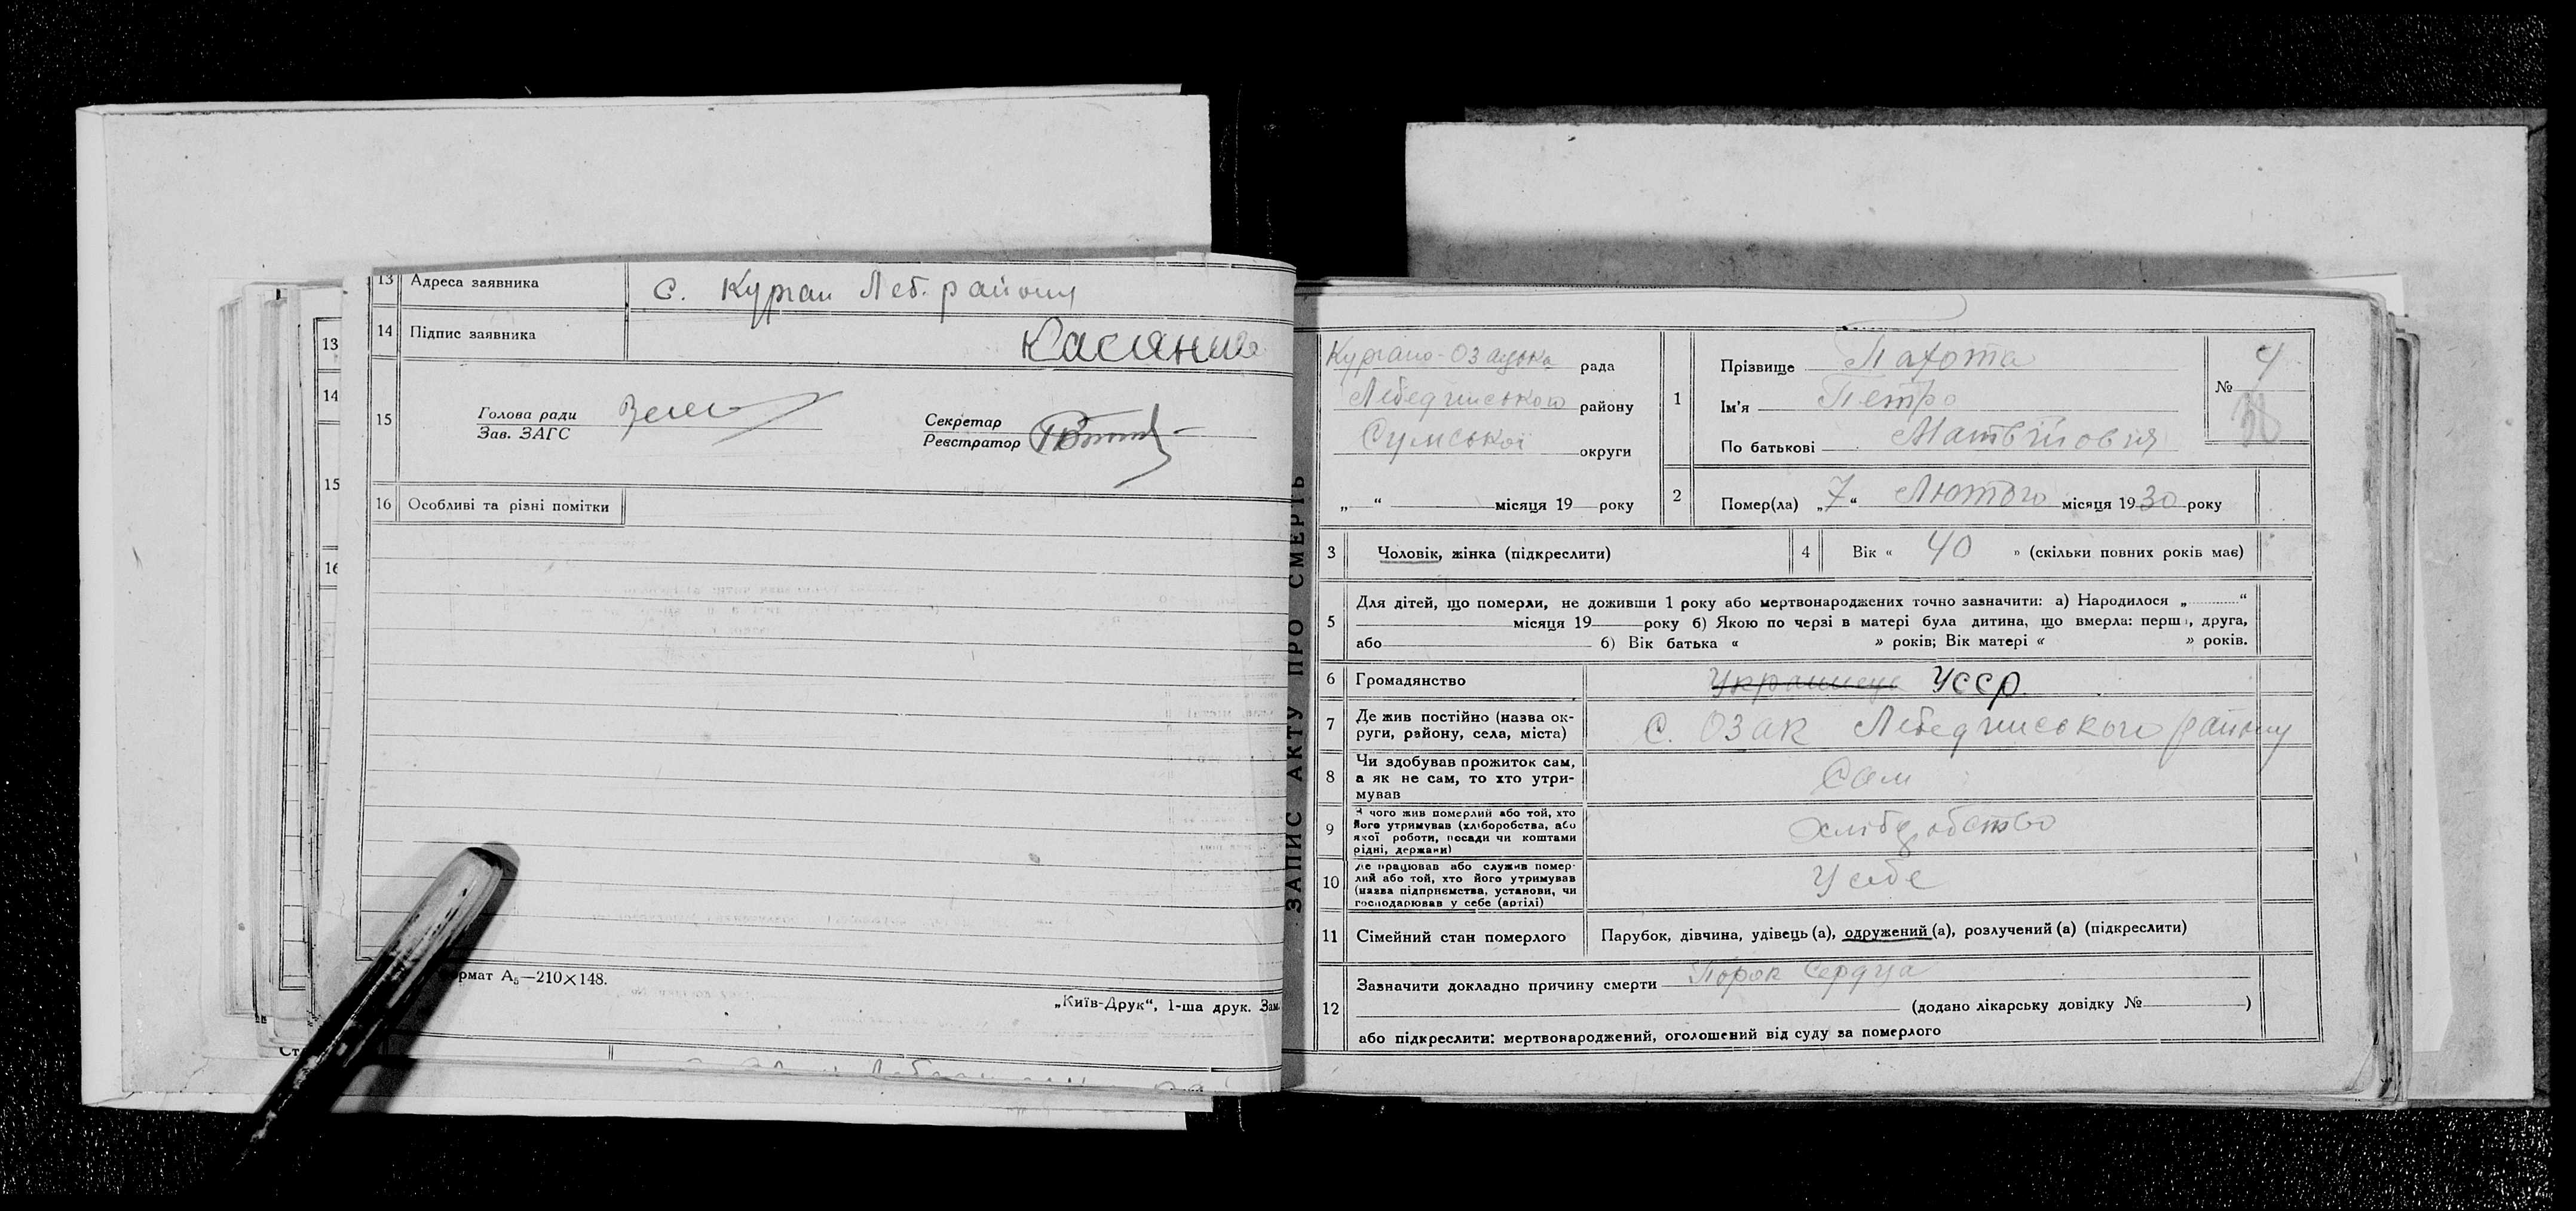 13 Адреса заявника с. Курган Леб. району
14 Підпис заявника Касяник
15 Голова ради
Зав. ЗАГС
Секретар
Реєстратор
16 Особливі та різні помітки
13
14
15
16
формат А5—210×148.
„Київ-Друк“, 1-ша друк. Зам.
ЗАПИС АКТУ ПРО СМЕРТЬ
Кургано-Озацька рада
Лебединського району
Сумської округи
„ “ місяця 19 року
1 Прізвище Пахота
Ім'я Петро
По батькові Матвійович
№ 4
2 Помер(ла) „7“ Лютого місяця 1930 року
3 Чоловік, жінка (підкреслити)
4 Вік « 40 » (скільки повних років має)
5 Для дітей, що померли, не доживши 1 року або мертвонароджених точно зазначити: а) Народилося „ “
місяця 19 року б) Якою по черзі в матері була дитина, що вмерла: перша, друга,
або б) Вік батька « » років; Вік матері « » років.
6 Громадянство Украинець УССР
7 Де жив постійно (назва ок-
руги, району, села, міста) С. Озак Лебединського району
8 Чи здобував прожиток сам,
а як не сам, то хто утри-
мував Сам
9 З чого жив померлий або той, хто
його утримував (хліборобства, або
якої роботи, посади чи коштами
рідні, держави) хліборобство
10 Де працював або служив помер-
лий або той, хто його утримував
(назва підприємства, установи, чи
господарював у себе (артілі) У себе
11 Сімейний стан померлого Парубок, дівчина, удівець (а), одружений (а), розлучений (а) (підкреслити)
12 Зазначити докладно причину смерти Порок сердца
(додано лікарську довідку № )
або підкреслити: мертвонароджений, оголошений від суду за померлого